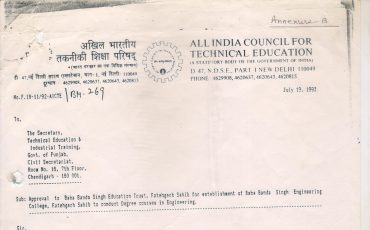 Annexure-B
अखिल भारतीय
तकनीकी शिक्षा परिषद्
ALL INDIA COUNCIL FOR
TECHNICAL EDUCATION
(A STATUTORY BODY OF THE GOVERNMENT OF INDIA)
D 47, N.D.S.E., PART I NEW DELHI 110049
PHONE 4629908, 4620637, 4620643, 4620815
नई दिल्ली 110049
4629908, 4620637, 4620643, 4620815
BH-269
July 19, 1992
To,
The Secretary,
Technical Education &
Industrial Training,
Govt. of Punjab,
Civil Secretariat,
Room No. 16, 7th Floor,
Chandigarh - 160 001.
Sub: Approval to Baba Banda Singh Education Trust, Fatehgarh Sahib for establishment of Baba Banda Singh Engineering
College, Fatehgarh Sahib to conduct Degree courses in Engineering.
Sir,